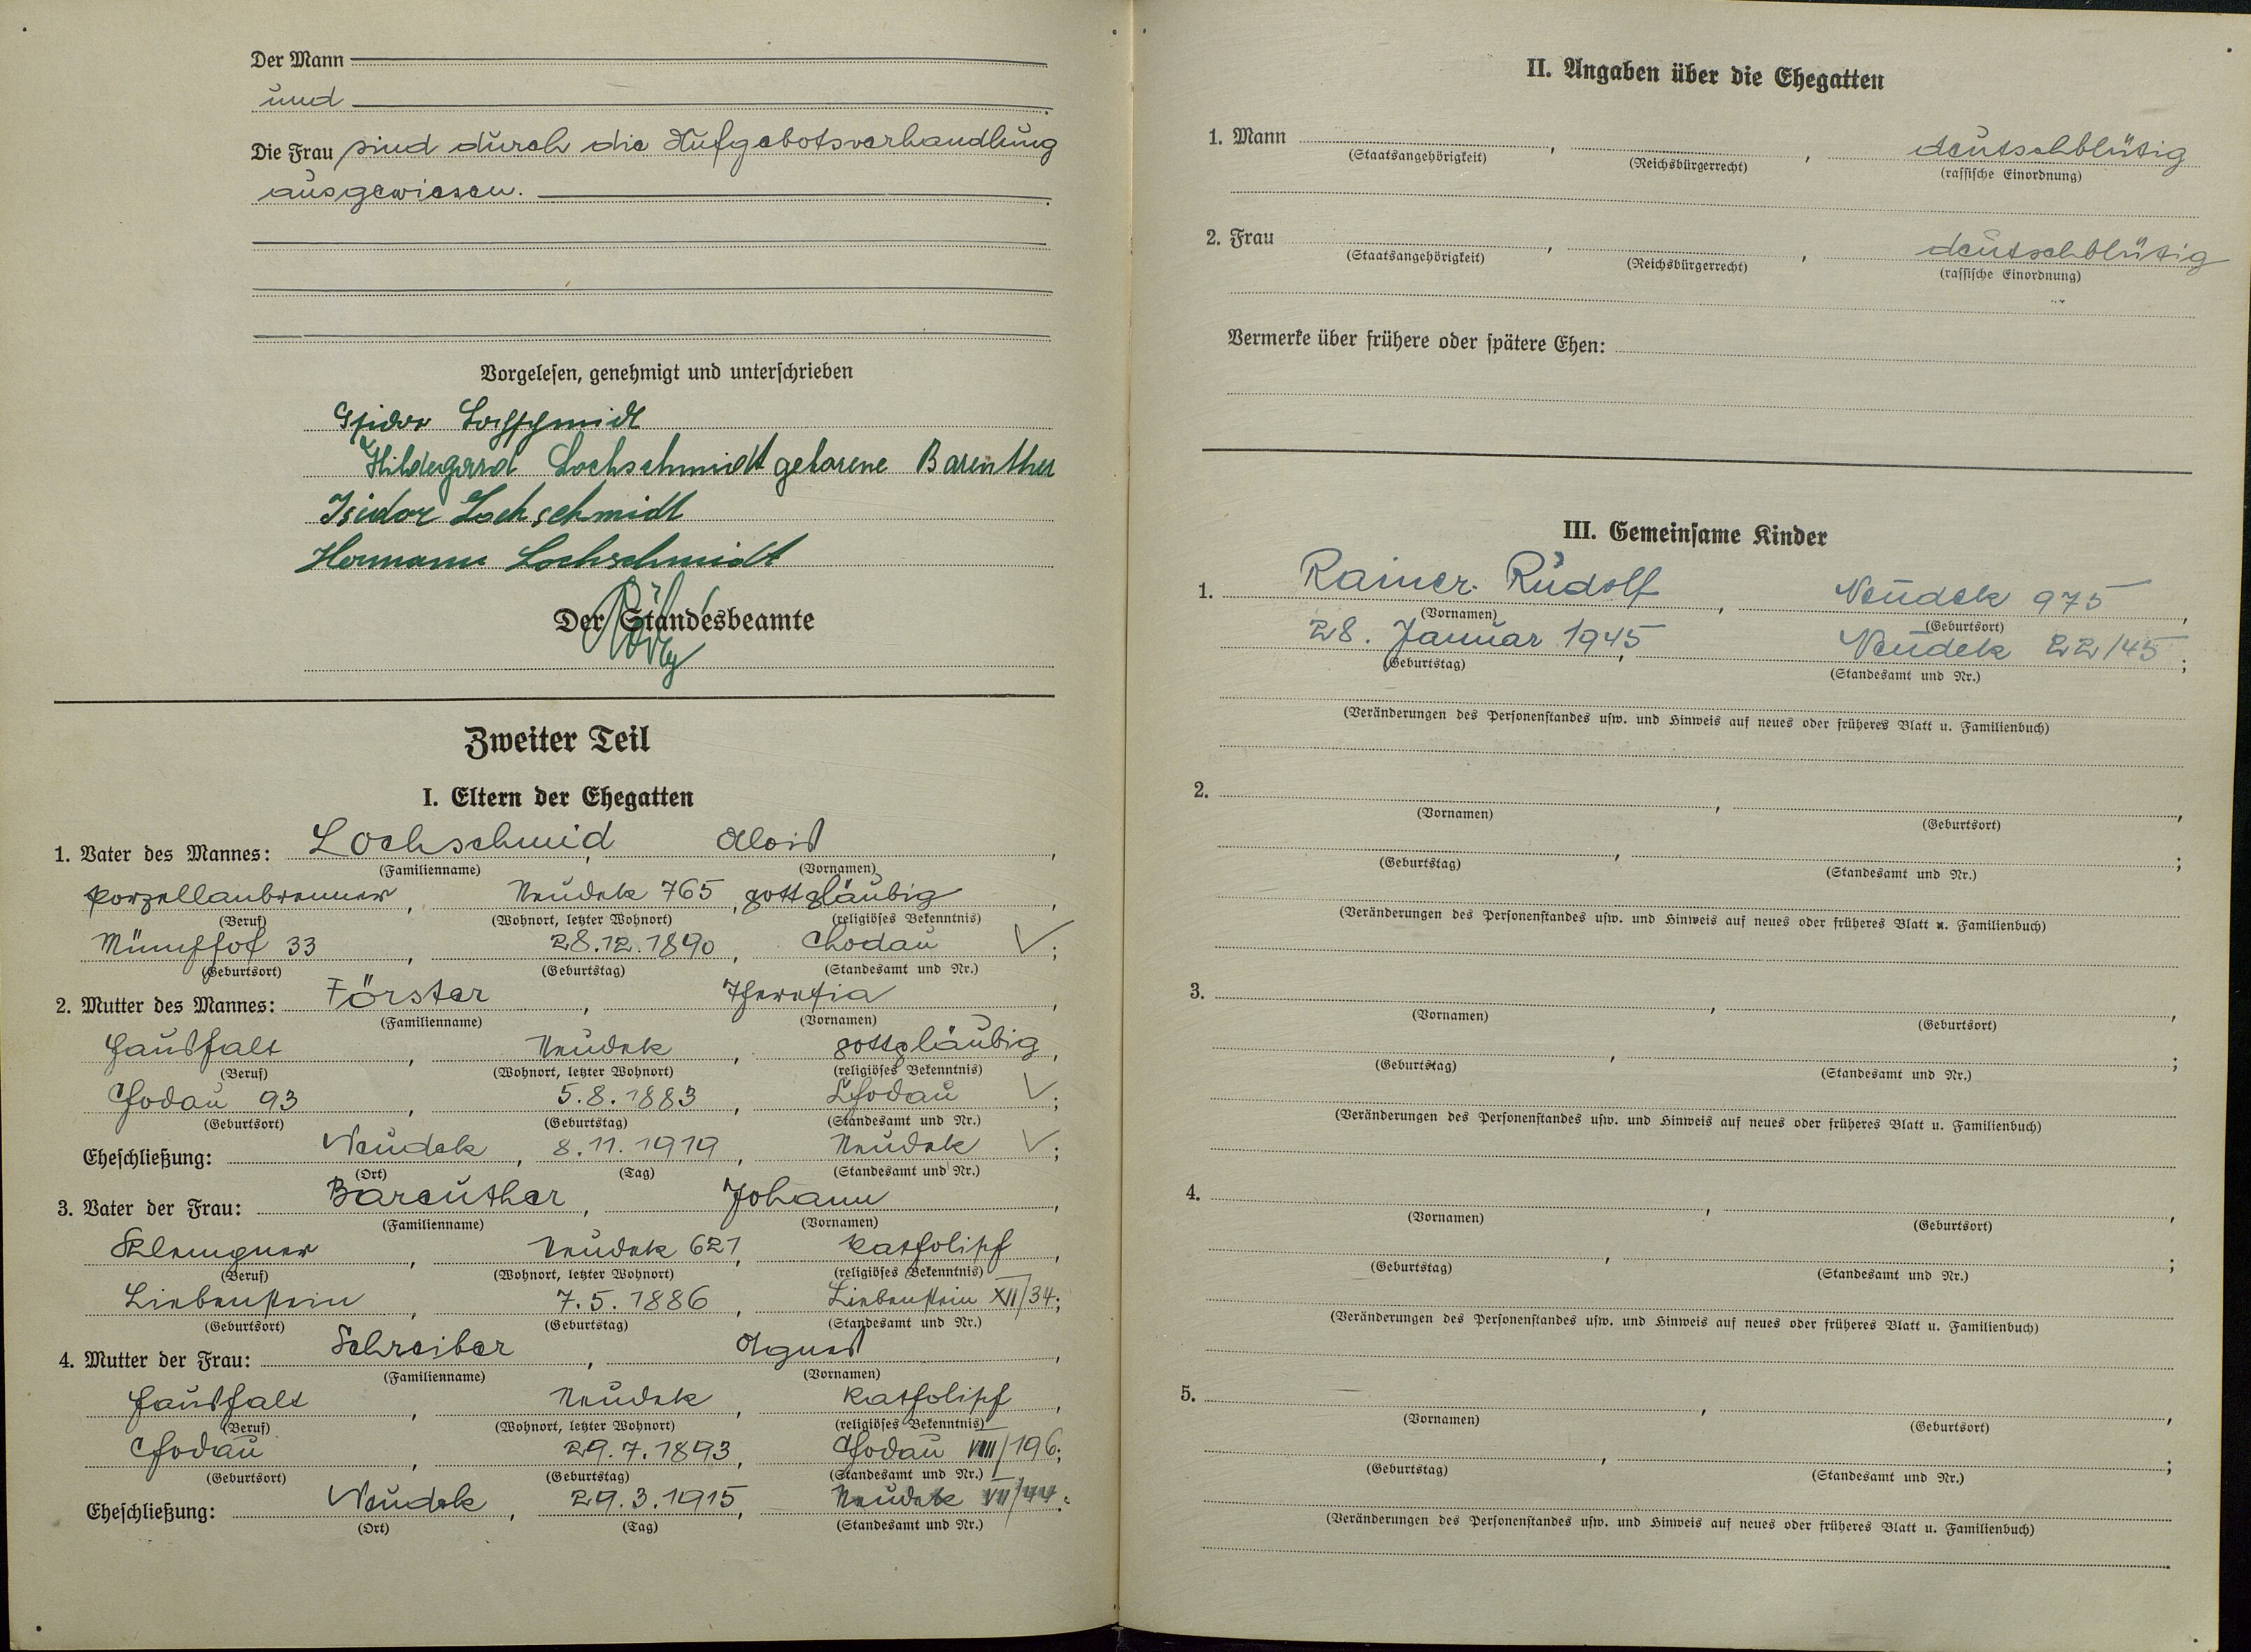 Der Mann
und
Die Frau sind durch die Aufgebotsverhandlung
ausgewiesen.
Vorgelesen, genehmigt und unterschrieben
Isidor Lochschmidt
Hildegard Lochschmidt geborene Bareuther
Isidor Lochschmidt
Hermann Lochschmidt
Der Standesbeamte
Zweiter Teil
I. Eltern der Ehegatten
1. Vater des Mannes: Lochschmid, Alois,
(Familienname) (Vornamen)
Porzellanbrenner, Neudek 765, gottgläubig,
(Beruf) (Wohnort, letzter Wohnort) (religiöses Bekenntnis)
Münchhof 33, 28.12.1890, Chodau ✓;
(Geburtsort) (Geburtstag) (Standesamt und Nr.)
2. Mutter des Mannes: Förster, Theresia,
(Familienname) (Vornamen)
Haushalt, Neudek, gottgläubig,
(Beruf) (Wohnort, letzter Wohnort) (religiöses Bekenntnis)
Chodau 93, 5.8.1883, Chodau ✓;
(Geburtsort) (Geburtstag) (Standesamt und Nr.)
Eheschließung: Neudek, 8.11.1919, Neudek ✓;
(Ort) (Tag) (Standesamt und Nr.)
3. Vater der Frau: Bareuther, Johann,
(Familienname) (Vornamen)
Klempner, Neudek 621, katholisch,
(Beruf) (Wohnort, letzter Wohnort) (religiöses Bekenntnis)
Liebenstein, 7.5.1886, Liebenstein XII/34;
(Geburtsort) (Geburtstag) (Standesamt und Nr.)
4. Mutter der Frau: Schreiber, Agnes,
(Familienname) (Vornamen)
Haushalt, Neudek, katholisch,
(Beruf) (Wohnort, letzter Wohnort) (religiöses Bekenntnis)
Chodau, 29.7.1893, Chodau VIII/196;
(Geburtsort) (Geburtstag) (Standesamt und Nr.)
Eheschließung: Neudek, 29.3.1915, Neudek VII/44.
(Ort) (Tag) (Standesamt und Nr.)
II. Angaben über die Ehegatten
1. Mann , , deutschblütig
(Staatsangehörigkeit) (Reichsbürgerrecht) (rassische Einordnung)
2. Frau , , deutschblütig
(Staatsangehörigkeit) (Reichsbürgerrecht) (rassische Einordnung)
Vermerke über frühere oder spätere Ehen:
III. Gemeinsame Kinder
1. Rainer Rudolf, Neudek 975,
(Vornamen) (Geburtsort)
28. Januar 1945, Neudek 22/45;
(Geburtstag) (Standesamt und Nr.)
(Veränderungen des Personenstandes usw. und Hinweis auf neues oder früheres Blatt u. Familienbuch)
2. , ,
(Vornamen) (Geburtsort)
, ;
(Geburtstag) (Standesamt und Nr.)
(Veränderungen des Personenstandes usw. und Hinweis auf neues oder früheres Blatt u. Familienbuch)
3. , ,
(Vornamen) (Geburtsort)
, ;
(Geburtstag) (Standesamt und Nr.)
(Veränderungen des Personenstandes usw. und Hinweis auf neues oder früheres Blatt u. Familienbuch)
4. , ,
(Vornamen) (Geburtsort)
, ;
(Geburtstag) (Standesamt und Nr.)
(Veränderungen des Personenstandes usw. und Hinweis auf neues oder früheres Blatt u. Familienbuch)
5. , ,
(Vornamen) (Geburtsort)
, ;
(Geburtstag) (Standesamt und Nr.)
(Veränderungen des Personenstandes usw. und Hinweis auf neues oder früheres Blatt u. Familienbuch)